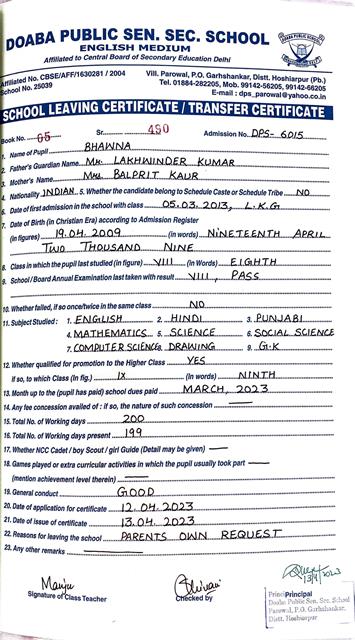 DOABA PUBLIC SEN. SEC. SCHOOL
ENGLISH MEDIUM
Affiliated to Central Board of Secondary Education Delhi
Affiliated No. CBSE/AFF/1630281 / 2004
School No. 25039
Vill. Parowal, P.O. Garhshankar, Distt. Hoshiarpur (Pb.)
Tel. 01884-282205, Mob. 99142-56205, 99142-66205
E-mail : dps_parowal@yahoo.co.in
SCHOOL LEAVING CERTIFICATE / TRANSFER CERTIFICATE
Book No. 05 Sr. 490 Admission No. DPS- 6015
1. Name of Pupil BHAWNA
2. Father's Guardian Name Mr. LAKHWINDER KUMAR
3. Mother's Name Mrs. BALPRIT KAUR
4. Nationality INDIAN 5. Whether the candidate belong to Schedule Caste or Schedule Tribe NO
6. Date of first admission in the school with class 05.03.2013, L.K.G
7. Date of Birth (in Christian Era) according to Admission Register
(in figures) 19.04.2009 (in Words) NINETEENTH APRIL
TWO THOUSAND NINE
8. Class in which the pupil last studied (in figure) VIII (in Words) EIGHTH
9. School / Board Annual Examination last taken with result VIII, PASS
10. Whether failed, if so once/twice in the same class NO
11. Subject Studied : 1. ENGLISH 2. HINDI 3. PUNJABI
4. MATHEMATICS 5. SCIENCE 6. SOCIAL SCIENCE
7. COMPUTER SCIENCE 8. DRAWING 9. G.K
12. Whether qualified for promotion to the Higher Class YES
if so, to which Class (In fig.) IX (in Words) NINTH
13. Month up to the (pupil has paid) school dues paid MARCH, 2023
14. Any fee concession availed of : if so, the nature of such concession
15. Total No. of Working days 200
16. Total No. of Working days present 199
17. Whether NCC Cadet / boy Scout / girl Guide (Detail may be given)
18. Games played or extra curricular activities in which the pupil usually took part
(mention achievement level therein)
19. General conduct GOOD
20. Date of application for certificate 12.04.2023
21. Date of issue of certificate 13.04.2023
22. Reasons for leaving the school PARENTS OWN REQUEST
23. Any other remarks
Manju
Signature of Class Teacher
Checked by
13/4/2023
Principal
Doaba Public Sen. Sec. School
Parowal, P.O. Garhshankar,
Distt. Hoshiarpur